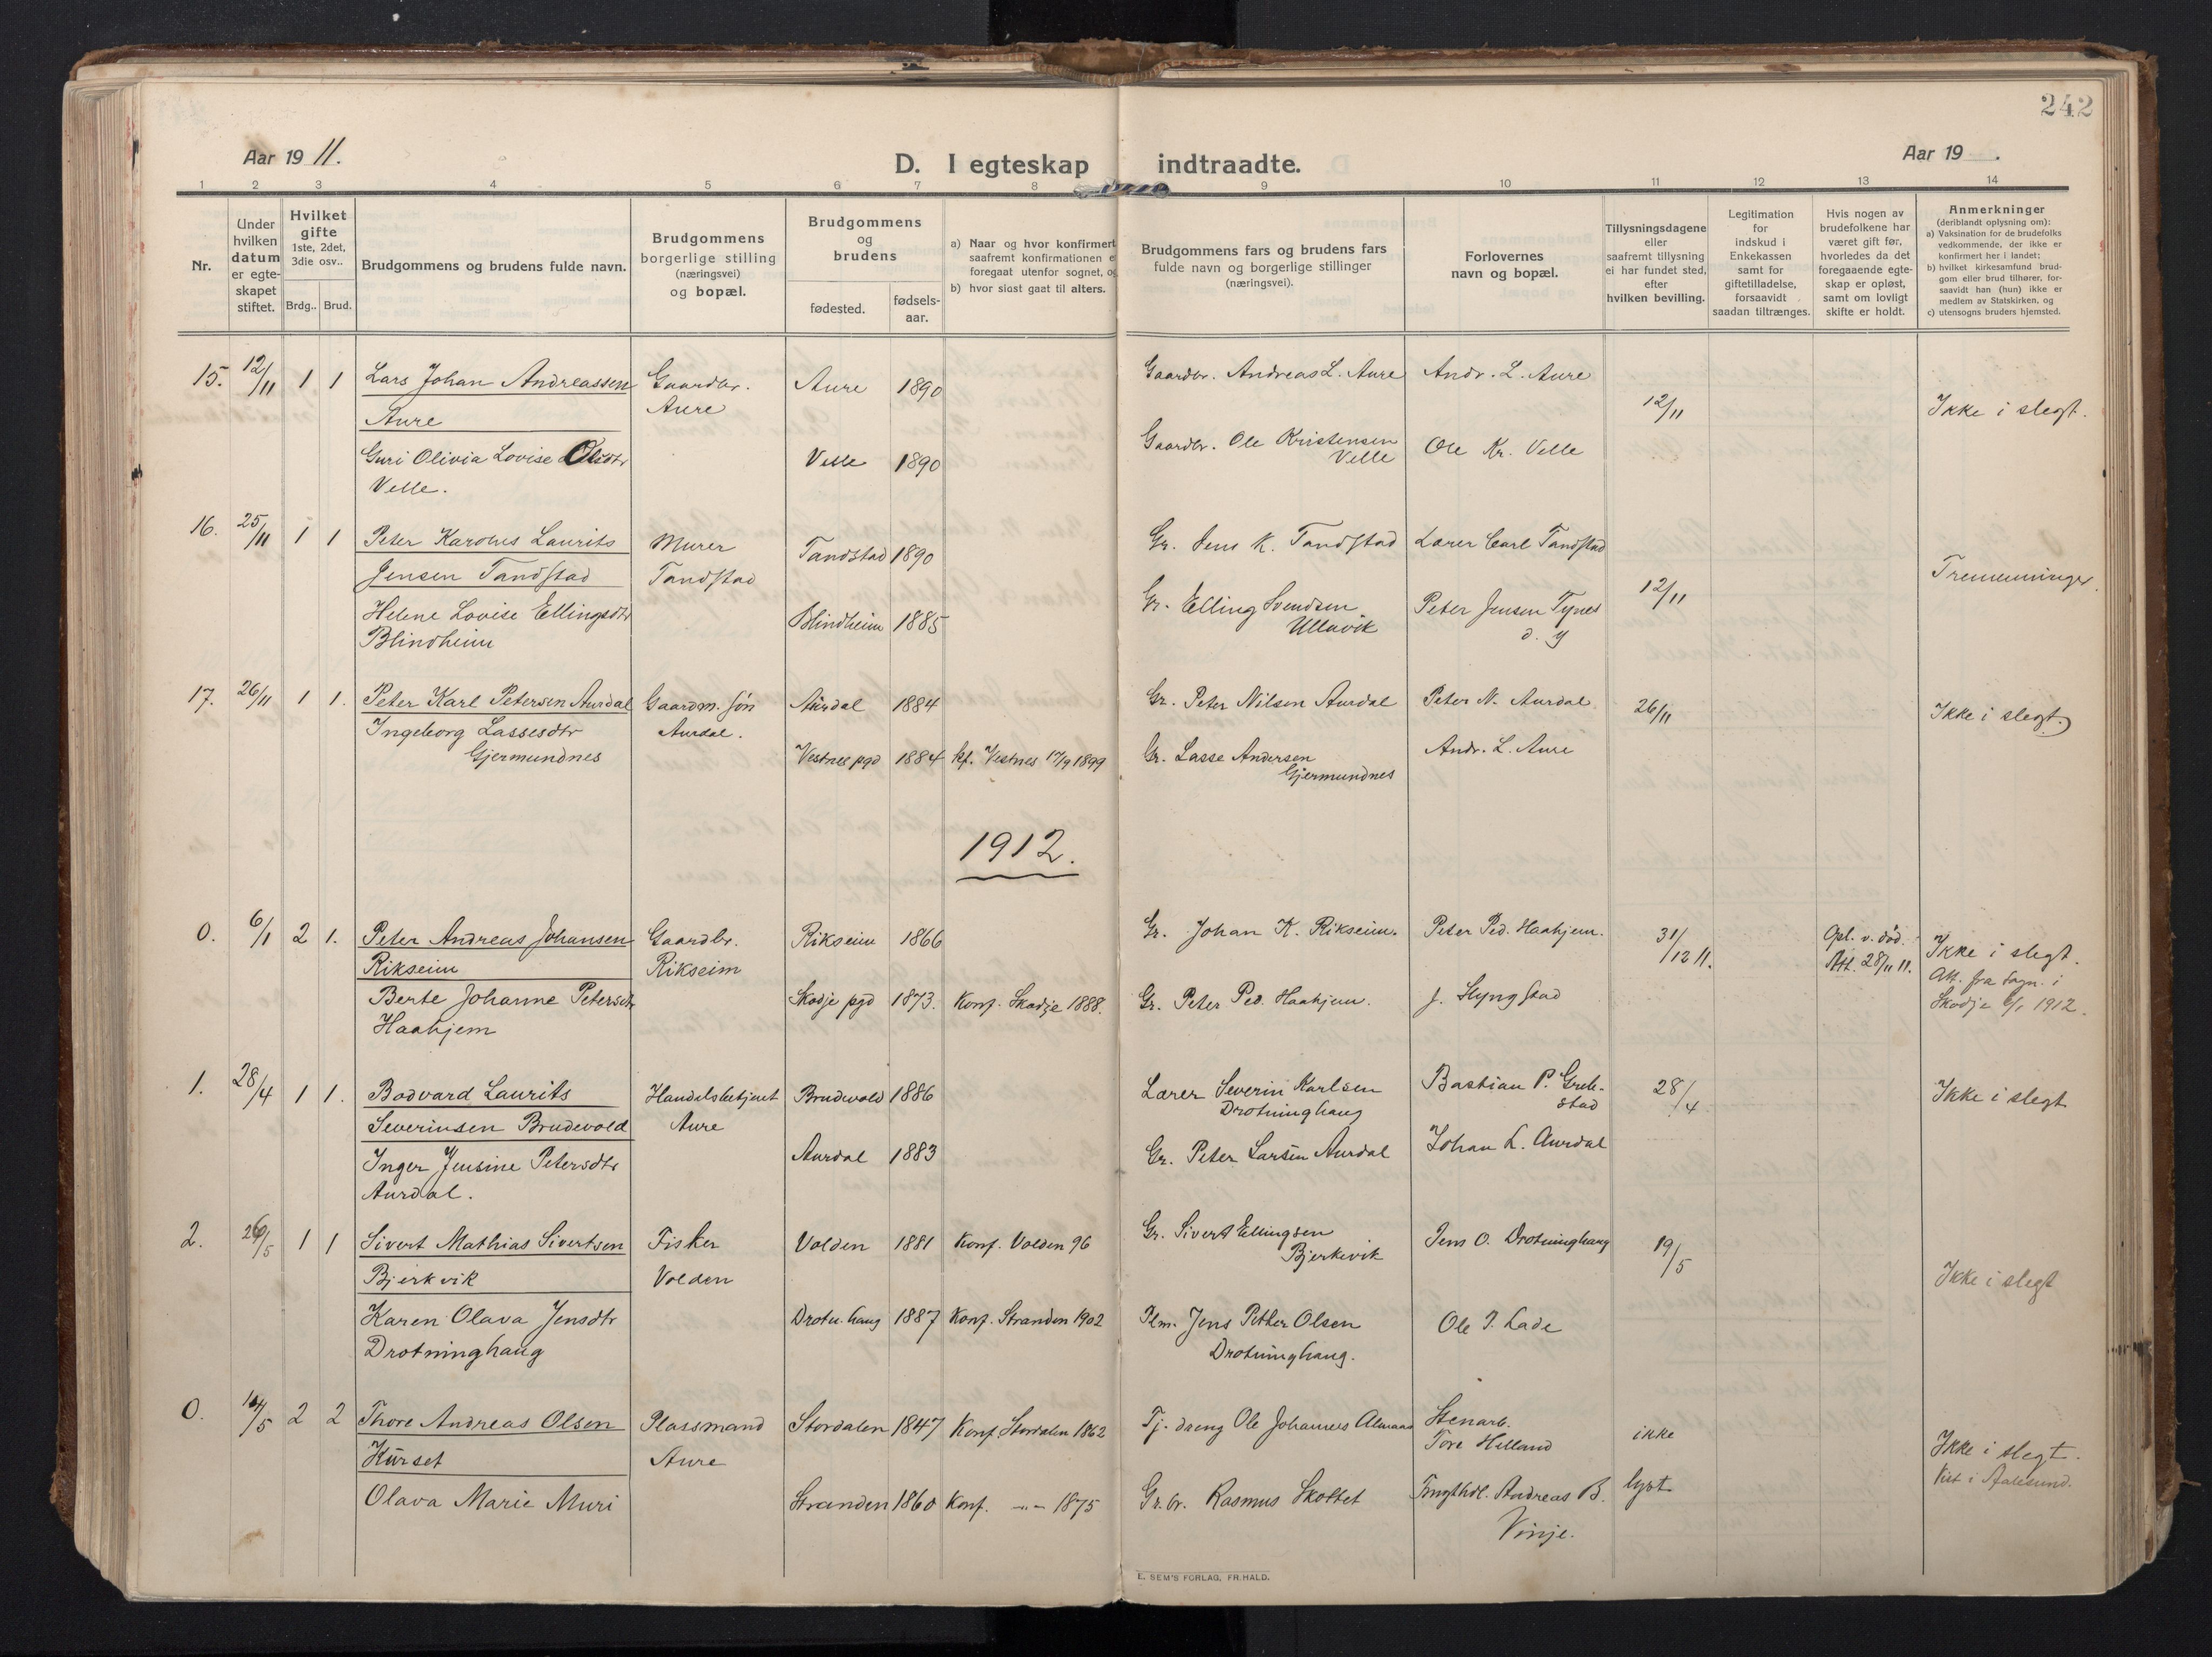 242
Aar 19 11.
D. I egteskap indtraadte.
Aar 19 .
1 2 3 4 5 6 7 8 9 10 11 12 13 14
Nr.
Under hvilken datum er egte-skapet stiftet.
Hvilket gifte
1ste, 2det, 3die osv..
Brdg.. Brud.
Brudgommens og brudens fulde navn.
Brudgommens borgerlige stilling (næringsvei) og bopæl.
Brudgommens og brudens
fødested. fødsels-aar.
a) Naar og hvor konfirmert
saafremt konfirmationen e
foregaat utenfor sognet, og
b) hvor sidst gaat til alters.
Brudgommens fars og brudens fars
fulde navn og borgerlige stillinger
(næringsvei).
Forlovernes
navn og bopæl.
Tillysningsdagene
eller
saafremt tillysning
ei har fundet sted,
efter
hvilken bevilling.
Legitimation
for
indskud i
Enkekassen
samt for
giftetilladelse,
forsaavidt
saadan tiltrænges.
Hvis nogen av
brudefolkene har
været gift før,
hvorledes da det
foregaaende egte-
skap er opløst,
samt om lovligt
skifte er holdt.
Anmerkninger
(deriblandt oplysning om):
a) Vaksination for de brudefolks
vedkommende, der ikke er
konfirmert her i landet;
b) hvilket kirkesamfund brud-
gom eller brud tilhører, for-
saavidt han (hun) ikke er
medlem av Statskirken, og
c) utensogns bruders hjemsted.
15. 12/11 1 1 Lars Johan Andreassen Gaardbr. Aure 1890 Gaardbr. Andreas L. Aure Andr. L. Aure
Aure Aure 12/11 Ikke i slegt.
Guri Olivia Lovise Olsdtr Velle 1890 Gaardbr. Ole Kristensen Velle Ole Kr. Velle
Velle.
16. 25/11 1 1 Peter Karolus Laurits Murer Tandstad 1890 Gr. Jens K. Tandstad Lærer Carl Tandstad
Jensen Tandstad Tandstad 12/11 Tremenninger.
Helene Lovise Ellingsdtr Blindheim 1885 Gr. Elling Svendsen Ullavik Peter Jensen Tynes d. y
Blindheim
17. 26/11 1 1. Peter Karl Petersen Aurdal Gaardm. søn Aurdal 1884 Gr. Peter Nilsen Aurdal Peter N. Aurdal 26/11 Ikke i slegt.
Ingeborg Lassesdtr Aurdal.
Gjermundnes Vestnes pgd 1884 kf. Vestnes 17/9 1899 Gr. Lasse Andersen Gjermundnes Andr. L. Aure
1912.
0. 6/1 2 1. Peter Andreas Johansen Gaardbr. Rikseim 1866 Gr. Johan K. Rikseim. Peter Ped. Haahjem. 31/12 11. Opl. v. død. Att. 28/11 11. Ikke i slegt.
Rikseim Rikseim Att. fra sogn. i
Berte Johanne Petersdtr Skodje pgd 1873. Konf. Skodje 1888. Gr. Peter Ped. Haahjem. J. Slyngstad Skodje 6/1 1912.
Haahjem
1. 28/4 1 1. Bodvard Laurits Handelsbetjent Brudevold 1886 Lærer Severin Karlsen Drotninghaug Bastian P. Greb-stad 28/4. Ikke i slegt
Severinsen Brudevold Aure
Inger Jensine Petersdtr Aurdal 1883 Gr. Peter Larsen Aurdal Johan L. Aurdal
Aurdal.
2. 26/5 1 1 Sivert Mathias Sivertsen Fisker Volden 1881 Konf. Volden 96 Gr. Sivert Ellingsen Bjerkevik Jens O. Drotninghaug 19/5 Ikke i slegt
Bjerkvik Volden
Karen Olava Jensdtr Drotn.haug 1887 Konf. Stranden 1902 Plm. Jens Petter Olsen Drotninghaug. Ole J. Lade
Drotninghaug
0. /5 2 2 Thore Andreas Olsen Plassmand Stordalen 1847 Konf. Stordalen 1862 Tj. dreng Ole Johannes Almaas Stenarb. Tore Helland ikke Ikke i slegt.
Kurset Aure Viet i Aalesund.
Olava Marie Muri Stranden 1860 Konf. -"- 1875 Gr.br. Rasmus Skottet Andreas B. Vinje. lyst
E. SEM'S FORLAG, FR.HALD.